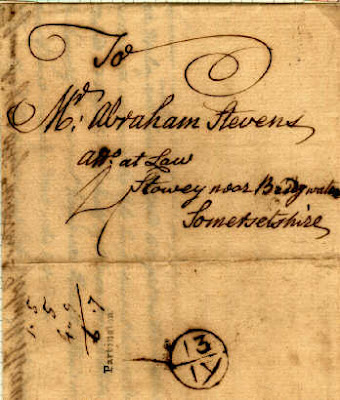 To
Mr. Abraham Stevens
att. at Law
Stowey near Bridgwater
Somersetshire
13
IY
Partington